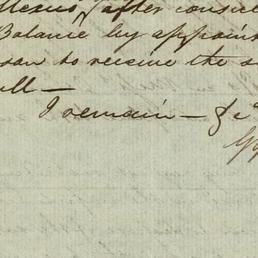 after consid
Balance by appoin
son to receive the s
ull —
I remain — &c